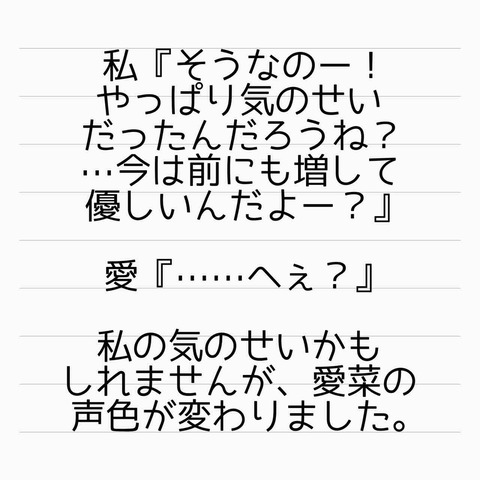 私『そうなのー！
やっぱり気のせい
だったんだろうね？
…今は前にも増して
優しいんだよー？』
愛『……へぇ？』
私の気のせいかも
しれませんが、愛菜の
声色が変わりました。